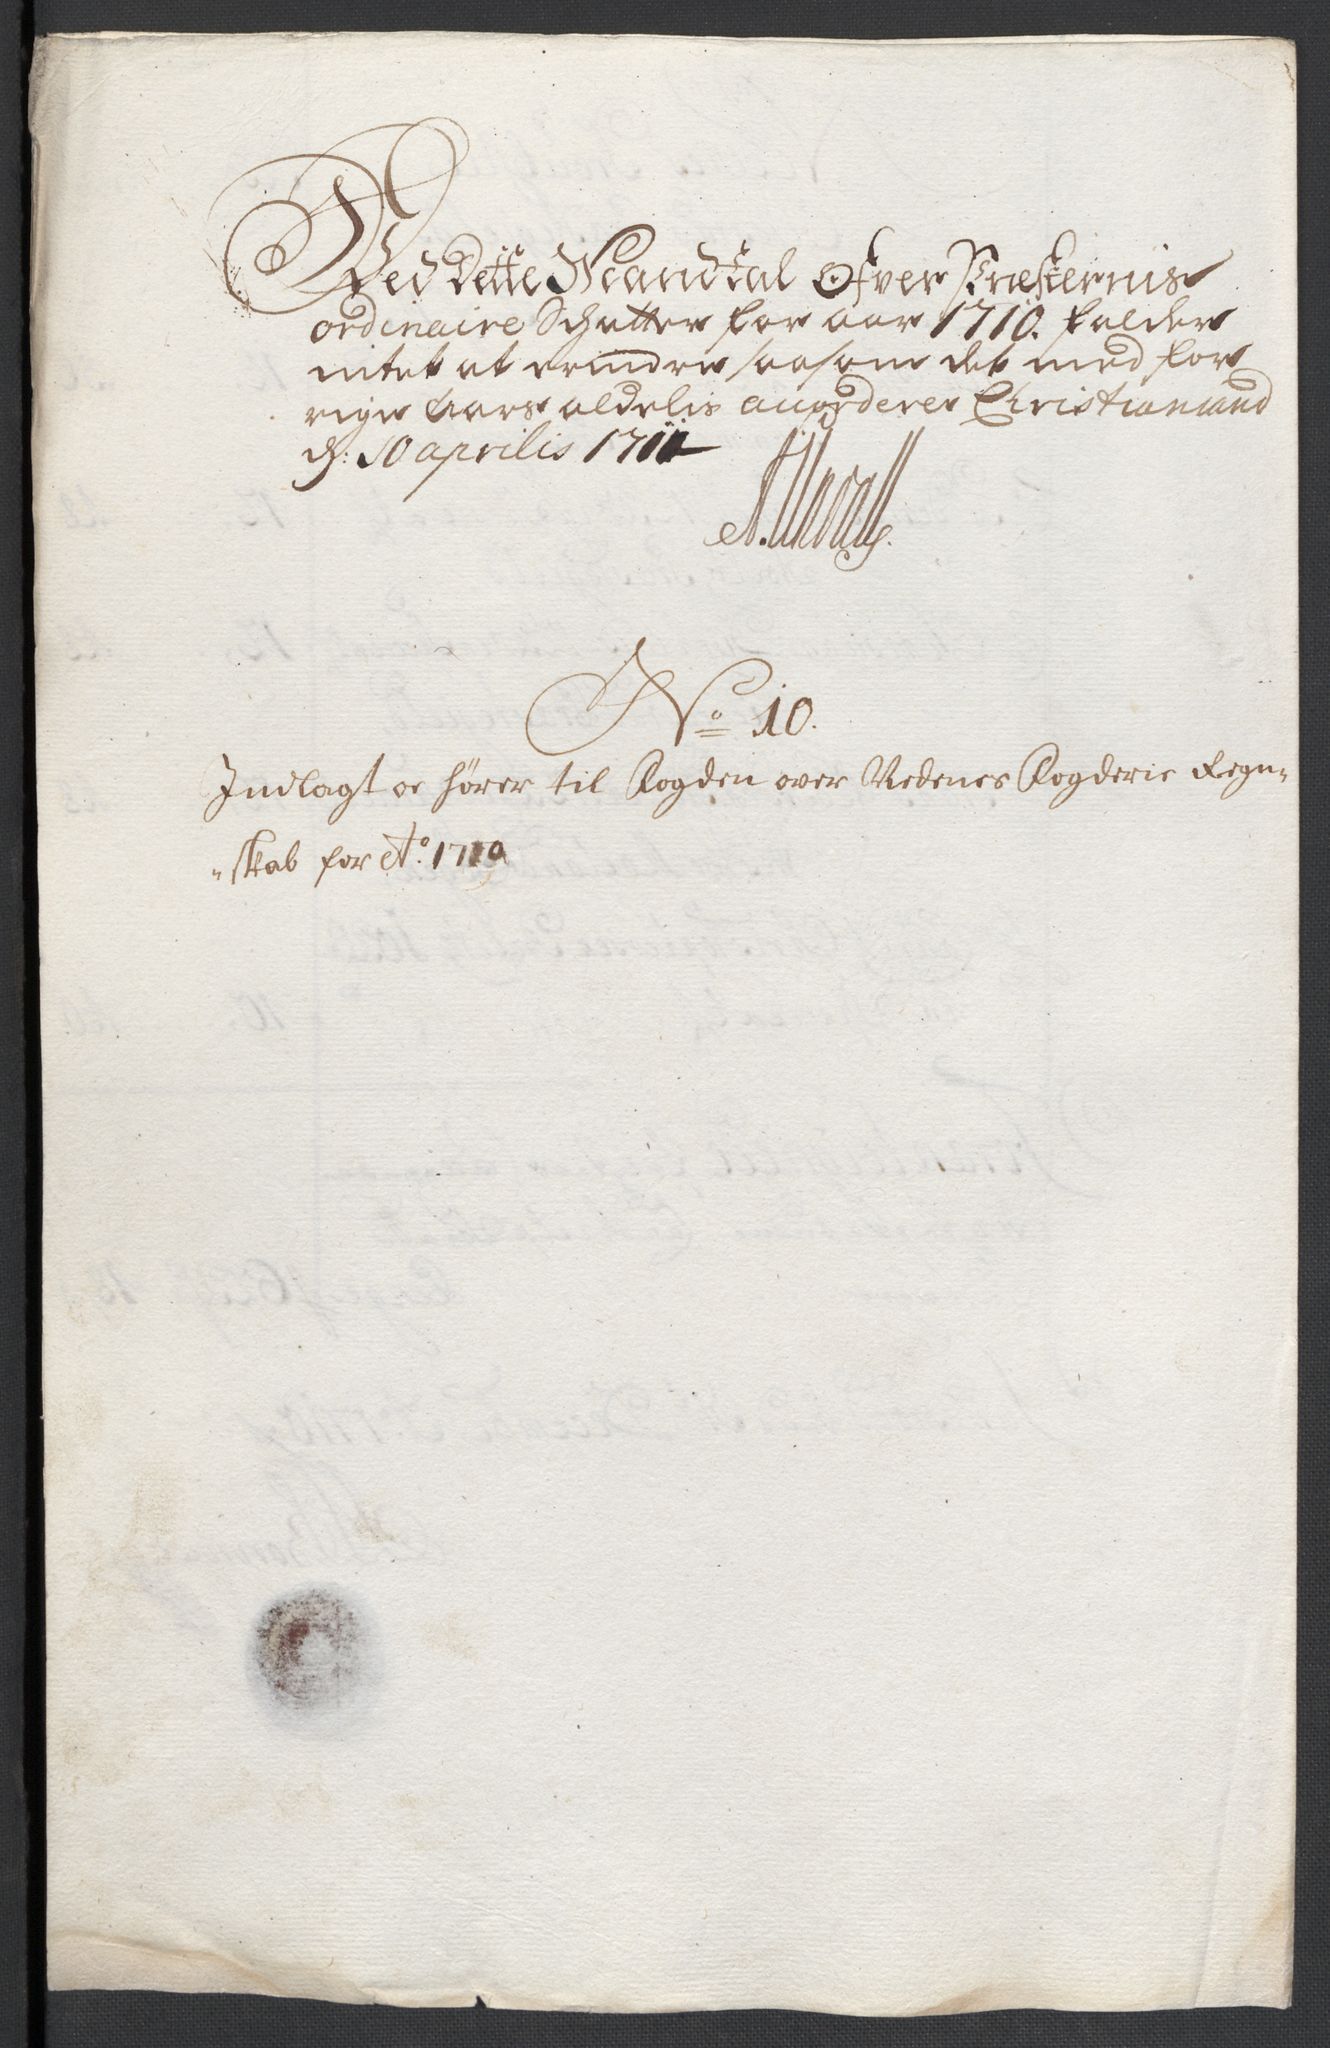 Ved dette Mandtal ofver Præsternis
ordinaire Schatter for aar 1710. falder
intet at erindre saasom det med for
rige aars aldelis accorderer Christiansand
d: 10 aprilis 1711
No 10.
Indlagt oc hører til Fogden over Nedenes Fogderie Regn-
-skab for Ao. 1710